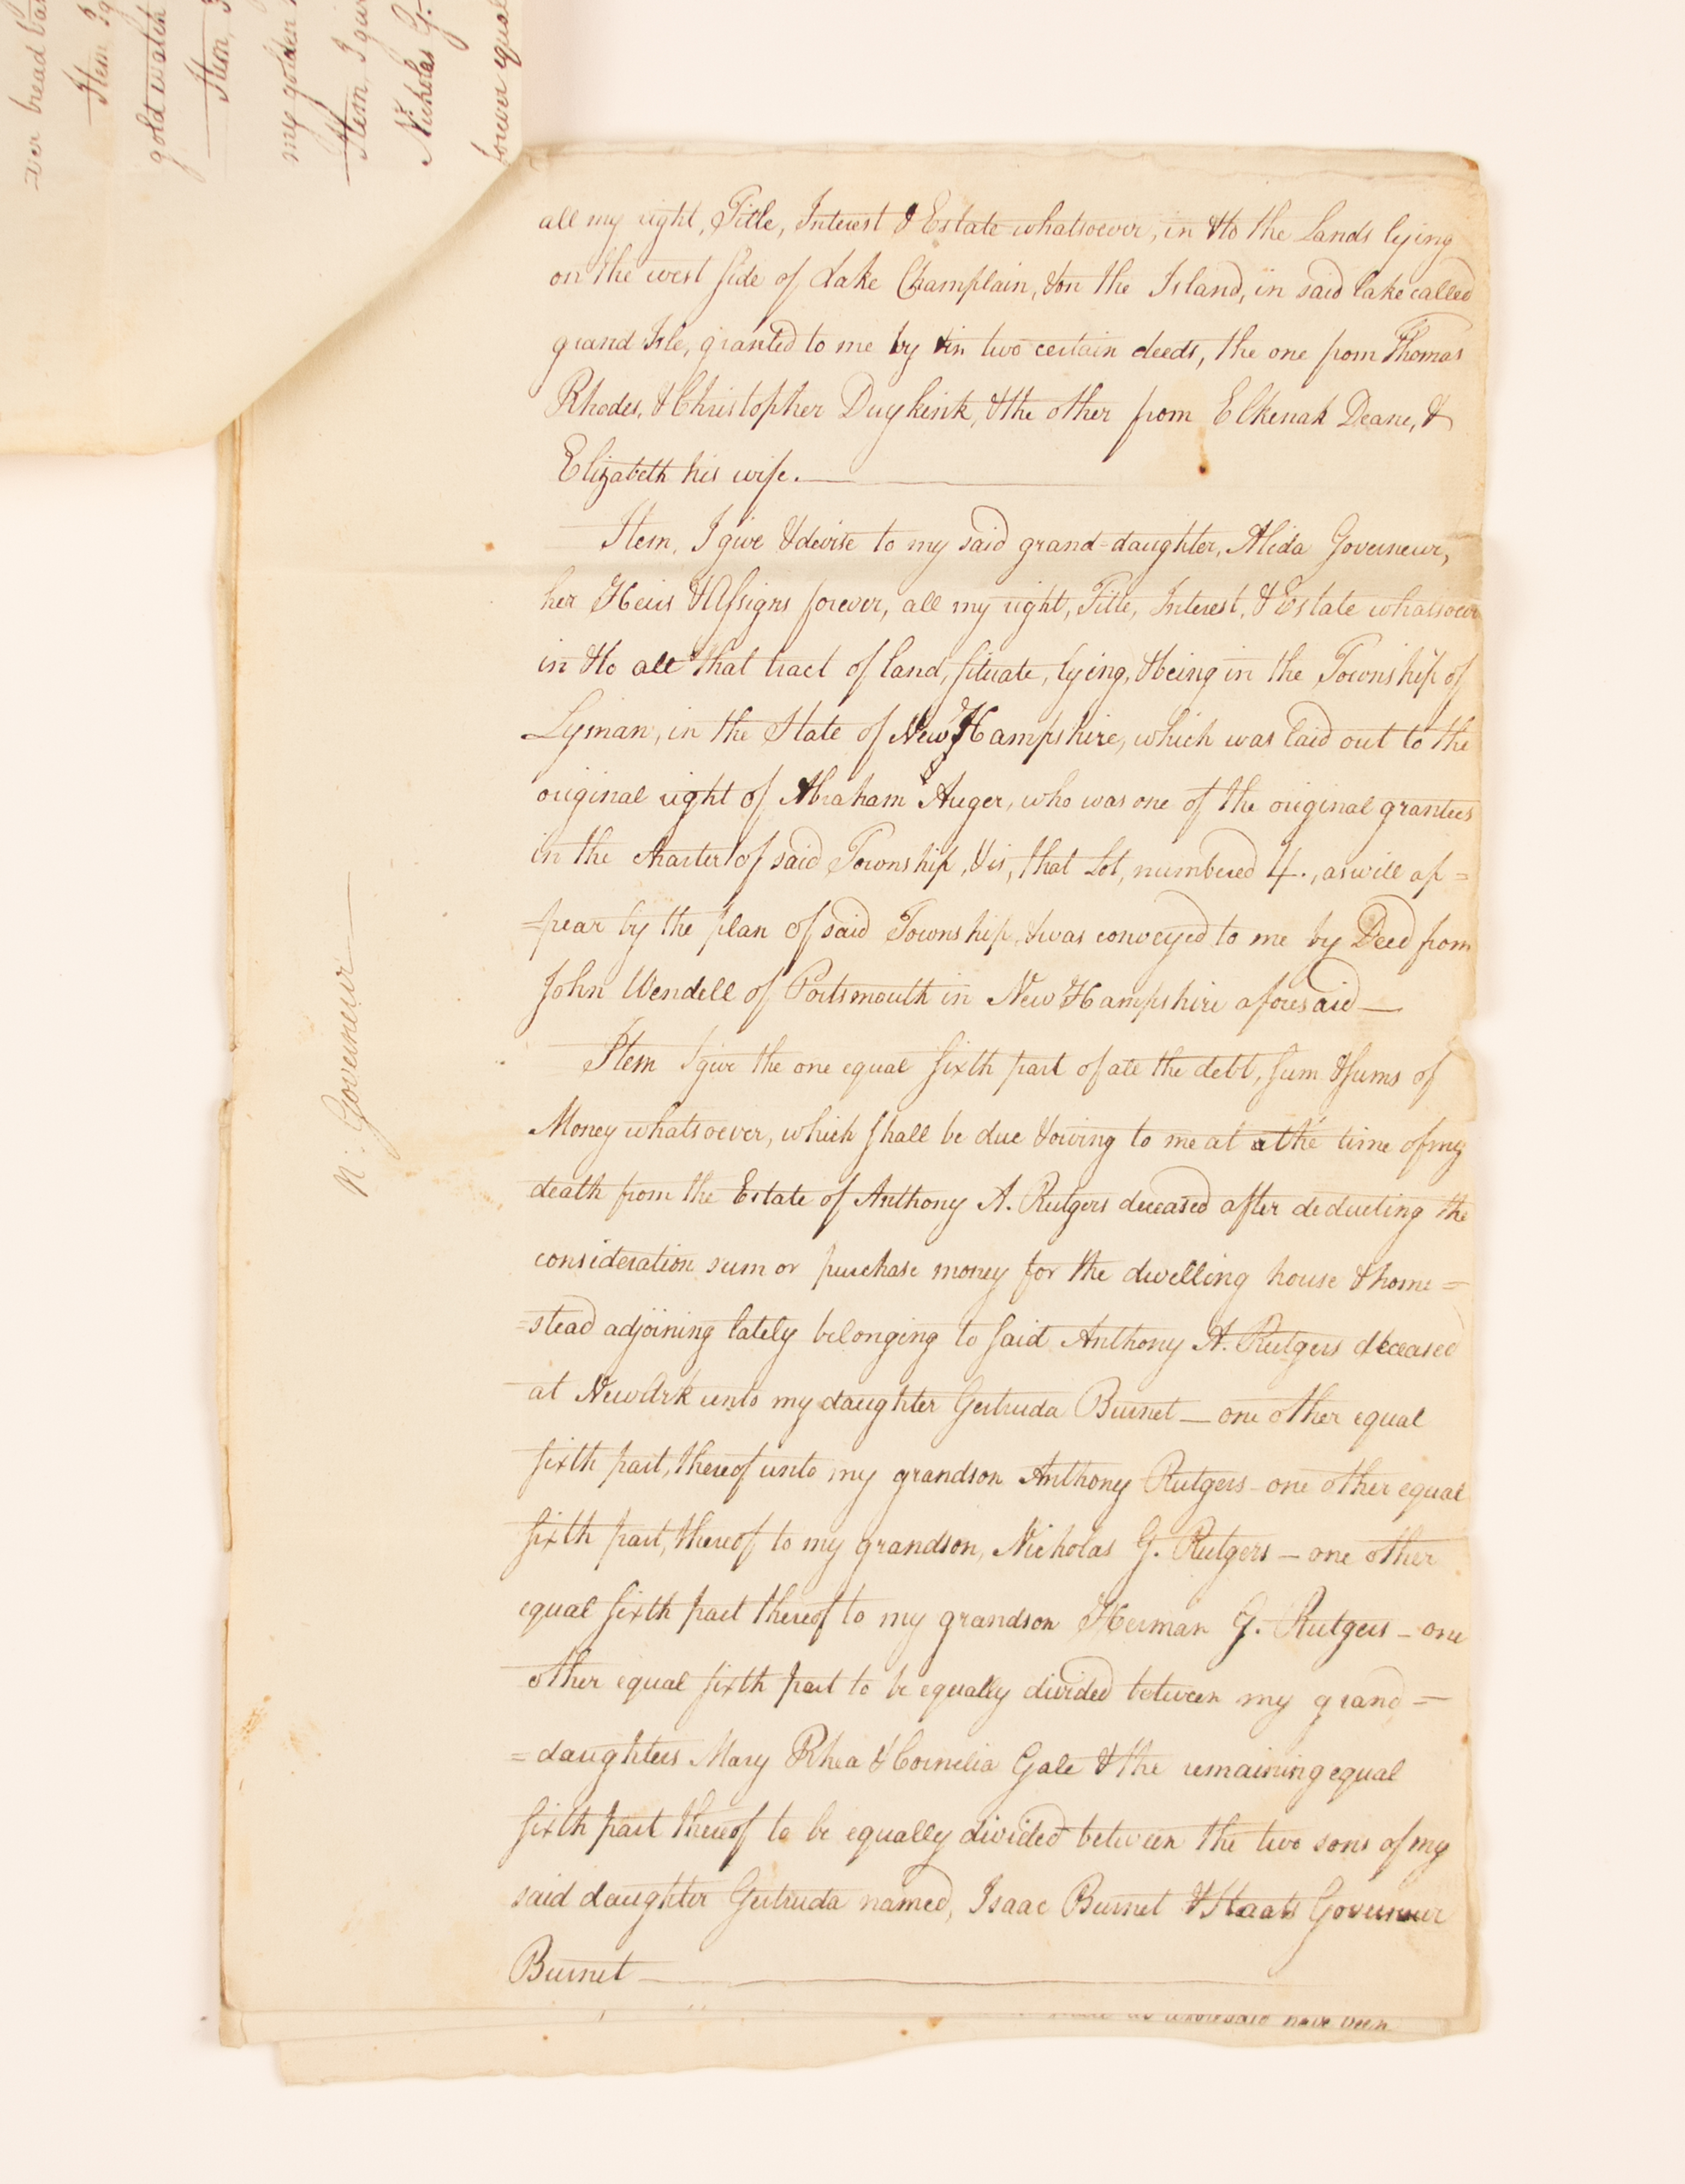 ver bread
Item I
gold watch
Item,
my golden
Item, I give
Nicholas G.
forever equal
all my right, Title, Interest & Estate whatsoever, in & to the Lands lying
on the west side of Lake Champlain, & on the Island, in said lake called
grand Isle, granted to me by & in two certain deeds, the one from Thomas
Rhodes, & Christopher Duykink, & the other from Elkenah Deane, &
Elizabeth his wife.
Item, I give & devise to my said grand-daughter, Alida Governeur,
her Heirs & Assigns forever, all my right, Title, Interest, & Estate whatsoever
in & to all that tract of land, situate, lying, & being in the Township of
Lyman, in the State of New Hampshire, which was laid out to the
original right of Abraham Auger, who was one of the original grantees
in the charter of said Township, & is, that Lot, numbered 4., as will ap=
=pear by the plan of said Township, & was conveyed to me by Deed from
John Wendell of Portsmouth in New Hampshire aforesaid—
Item I give the one equal sixth part of all the debt, sum & sums of
Money whatsoever, which shall be due & owing to me at the time of my
death from the Estate of Anthony A. Rutgers deceased after deducting the
consideration sum or purchase money for the dwelling house & home=
=stead adjoining lately belonging to said Anthony A. Rutgers deceased
at NewArk unto my daughter Gertruda Burnet — one other equal
sixth part, thereof unto my grandson Anthony Rutgers - one other equal
sixth part, thereof to my grandson, Nicholas G. Rutgers — one other
equal sixth part thereof to my grandson Herman G. Rutgers — one
other equal sixth part to be equally divided between my grand=
=daughters Mary Rhea & Cornelia Gale & the remaining equal
sixth part thereof to be equally divided between the two sons of my
said daughter Gertruda named, Isaac Burnet & Staats Governeur
Burnet
N: Governeur
have been